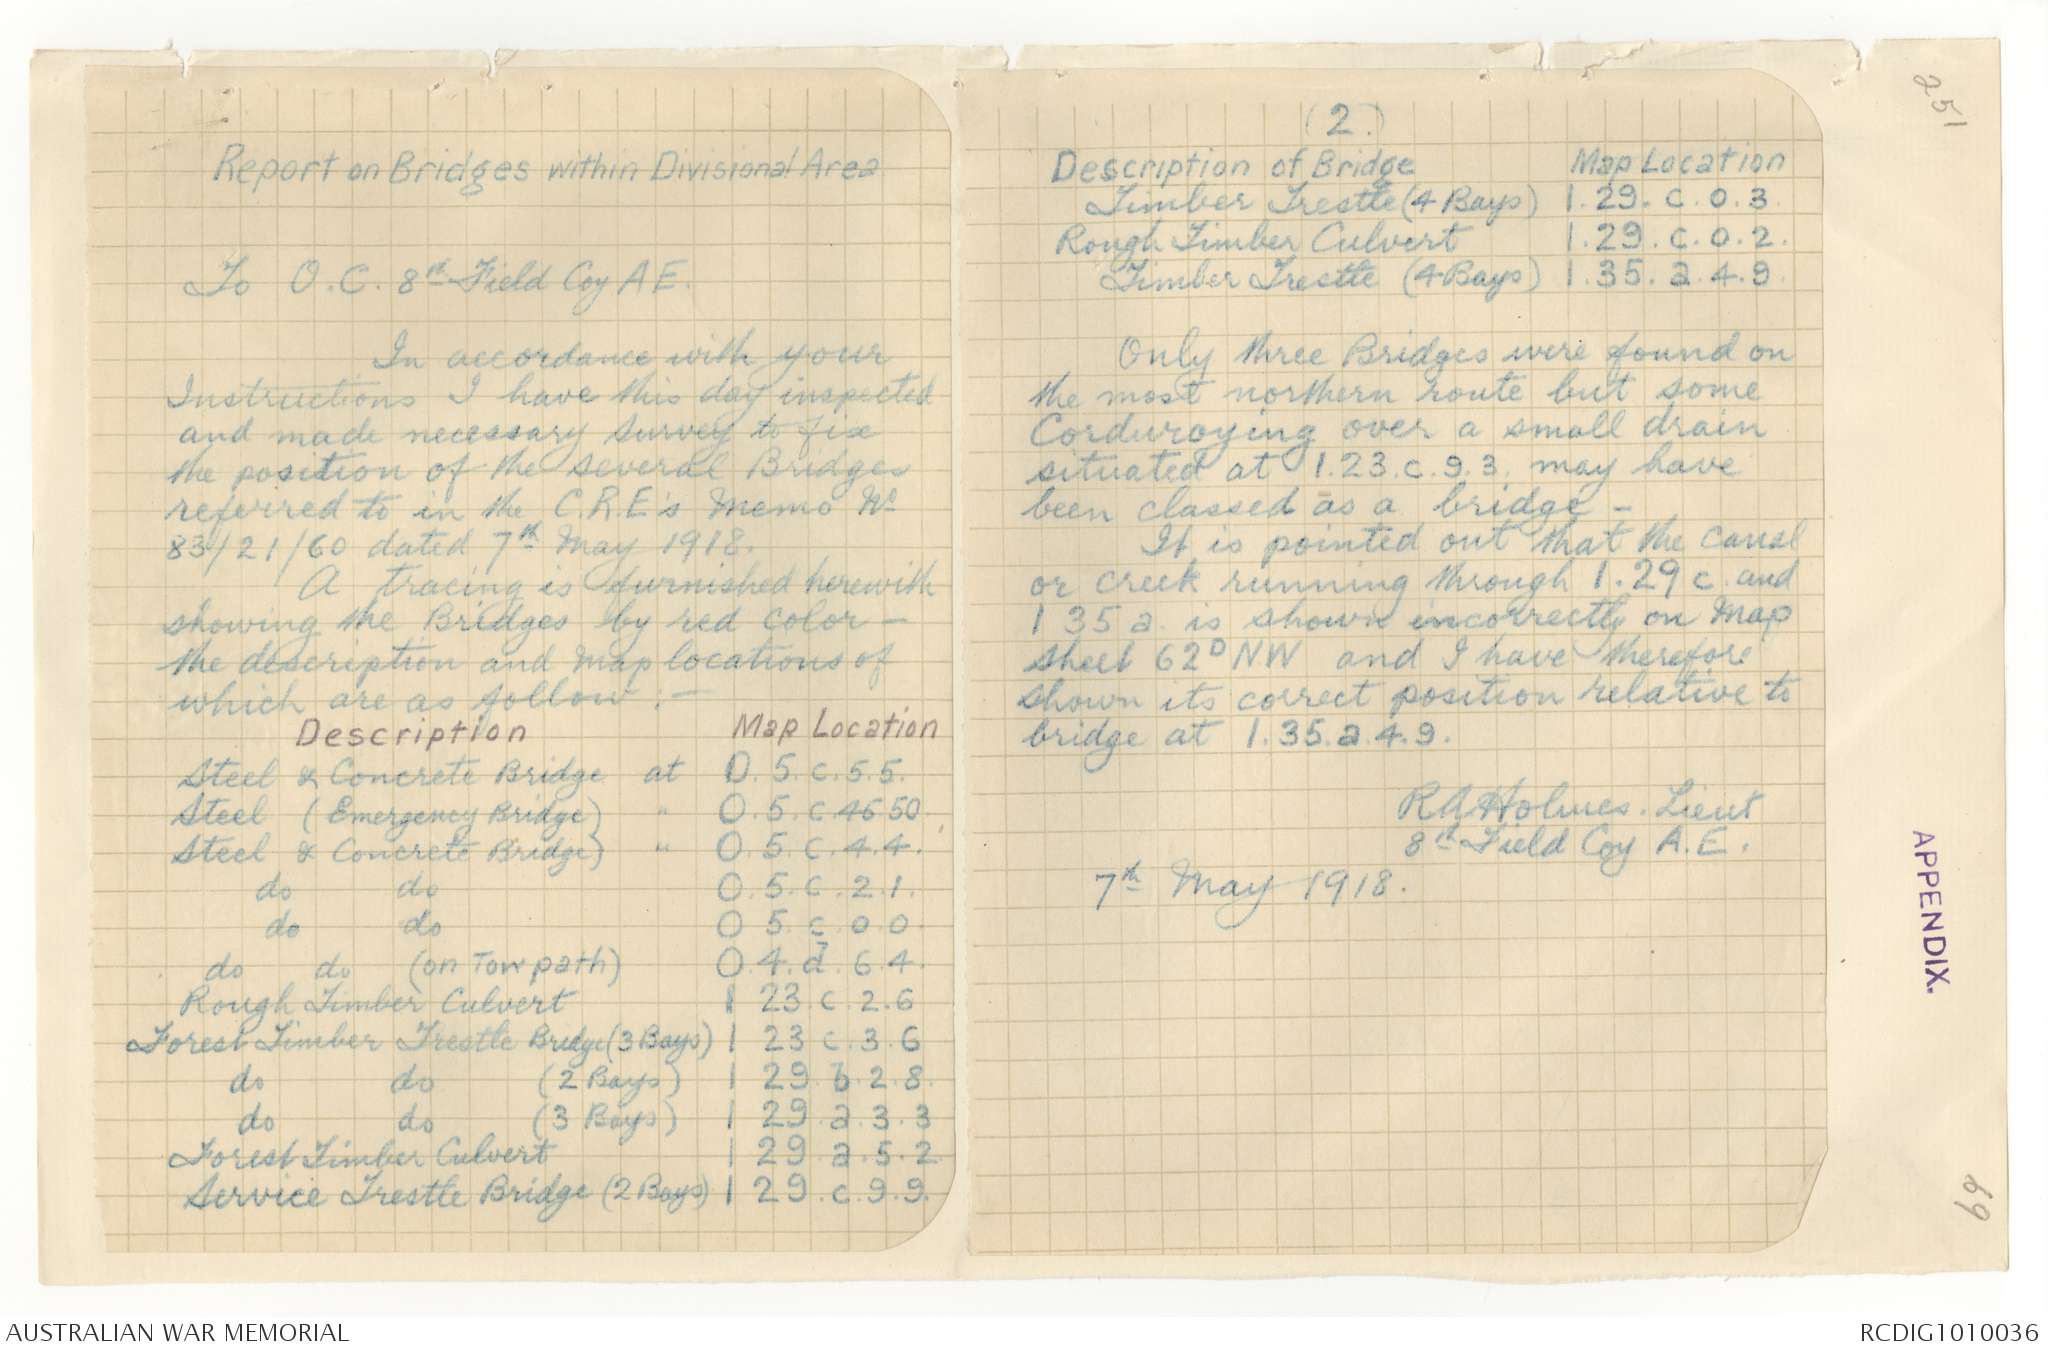 Report on Bridges within Divisional Area
To O.C. 8th Field Coy A E.
In accordance with your
Instructions I have this day inspected
and made necessary survey to fix
the position of the several Bridges
referred to in the C.R.E's Memo No
83/21/60 dated 7th May 1918.
A tracing is furnished herewith
showing the Bridges by red color -
the description and map locations of
which are as follow :-
Description Map Location
Steel & Concrete Bridge at O. 5. c. 5.5.
Steel (Emergency Bridge) " O. 5. c. 45 50
Steel & Concrete Bridge) " O. 5. c. 4.4.
do do O. 5. c. 2.1.
do do O 5. c. 0 0
do do (on Tow path) O. 4. d. 6.4.
Rough Timber Culvert 1 23. c. 2.6
Forest Timber Trestle Bridge (3 Bays) 1 23 c. 3.6
do do (2 Bays) 1 29. b. 2.8.
do do (3 Bays) 1 29. a. 3.3
Forest Timber Culvert 1 29. a. 5.2
Service Trestle Bridge (2 Bays) 1 29. c. 9.9.
(2.)
Description of Bridge Map Location
Timber Trestle (4 Bays) 1. 29. c. 0.3.
Rough Timber Culvert 1. 29. c. 0.2.
Timber Trestle (4 Bays) 1. 35. a. 4.9.
Only three Bridges were found on
the most northern route but some
Corduroying over a small drain
situated at 1.23.c.9.3. may have
been classed as a bridge -
It is pointed out that the canal
or creek running through 1.29 c. and
1 35 a. is shown incorrectly on Map
sheet 62D NW and I have therefore
shown its correct position relative to
bridge at 1.35.a.4.9.
RA Holmes. Lieut
8th Field Coy A.E.
7th May 1918.
251
APPENDIX.
69
AUSTRALIAN WAR MEMORIAL
RCDIG1010036